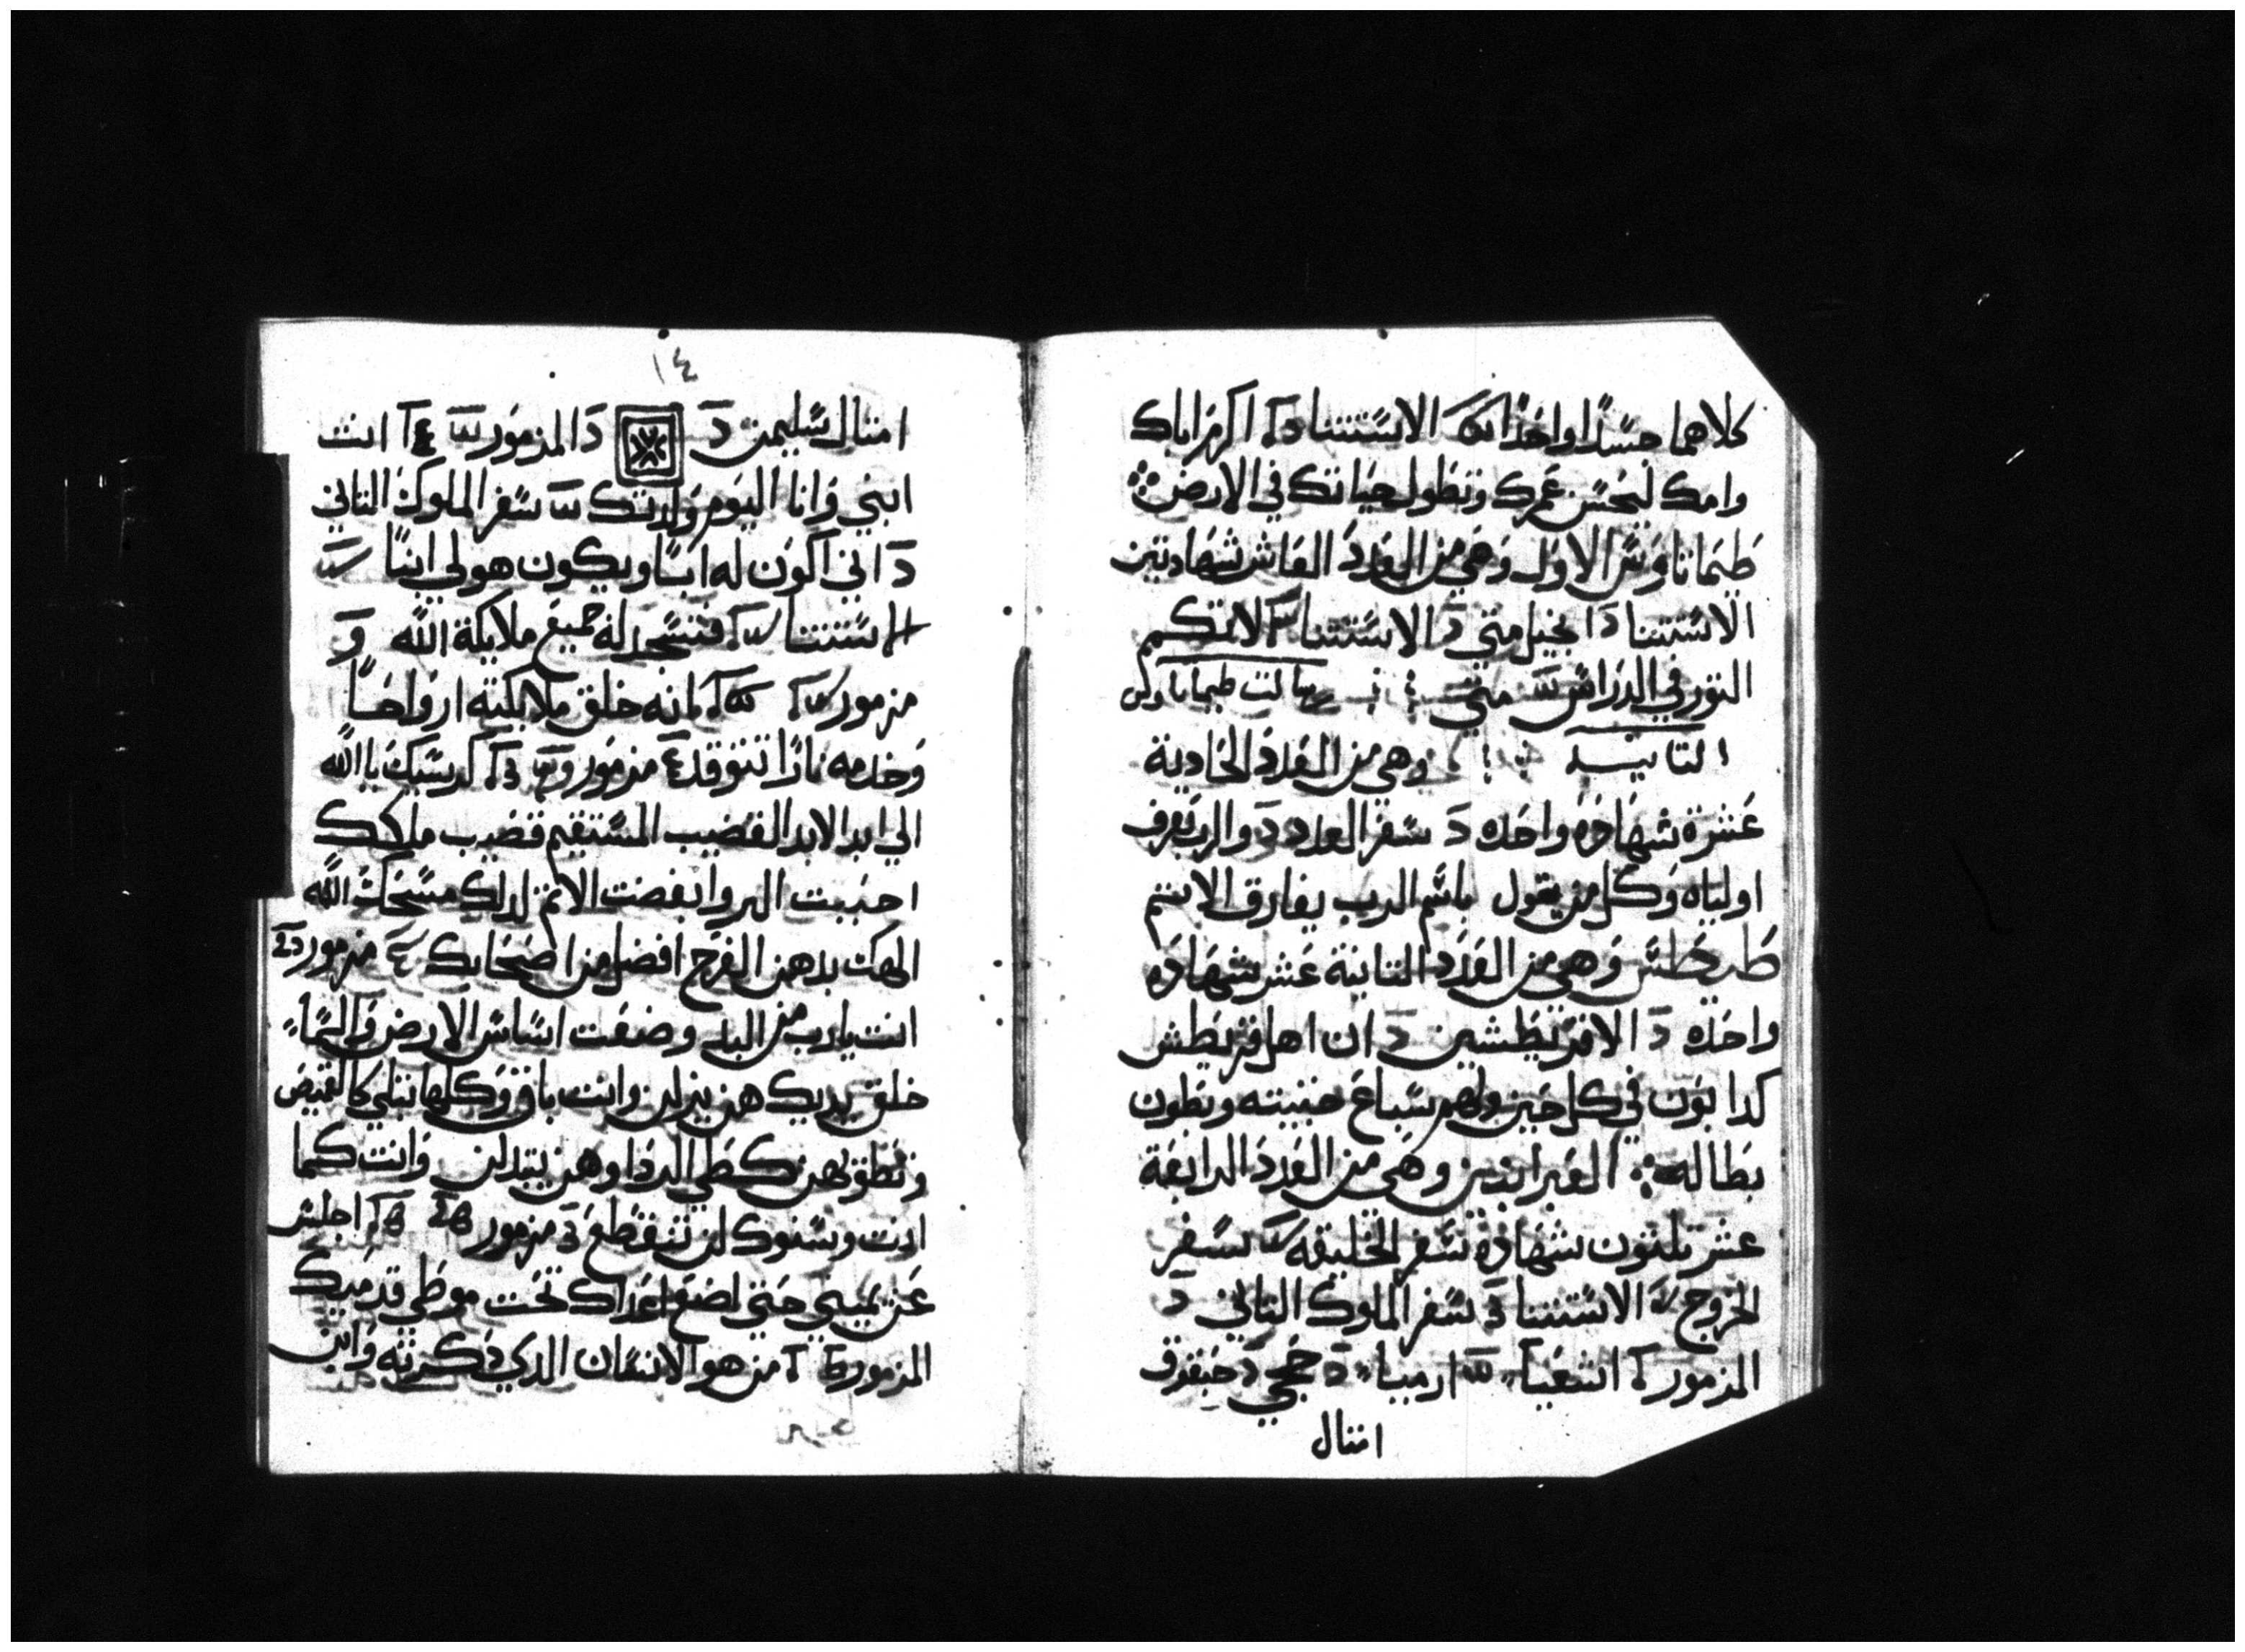 كلاهما جسدا واحدا الاستتنا اكرم اباك
وامك ليحسن عمرك وتطول حياتك في الارض
طيماتاوس الاول وهي من العدد العاشر شهادتين
الاستتنا د انجيل متي د الاستتنا لا تكم
التور في الدراس متي رسالت طيماتاوس
التانيه وهي من العدد الحادية
عشرة شهاده واحده د سفر العدد د والرب يعرف
اولياه وكل من يقول باسم الرب يفارق الاتم
طيطس وهي من العدد التانية عشر شهاده
واحده د الاقريطشين د ان اهل قريطش
كدابون في كل حين ولهم سباع خبيته وبطون
بطاله العبرانيين وهي من العدد الرابعة
عشر تلتون شهادة سفر الخليقه سفر
الخروج الاستتنا د سفر الملوك التاني د
المزمور اشعيا ارميا د حجي د حبقوق
امتال
١٤
امتال سليمن د د المزمور انت
ابني وانا اليوم ولدتك سفر الملوك التاني
د اني اكون له ابا ويكون هو لي ابنا
الاستتنا فتسجد له جميع ملايكة الله و
مزمور لانه خلق ملايكته ارواحا
وخدمه نارا تتوقد مزمور كرسيك يا الله
الي ابد الابد القضيب المستقيم قضيب ملكك
احببت البر وابغضت الاتم لدلك مسحك الله
الهك بدهن الفرح افضل من اصحابك مزمور
انت يا رب من البد وضعت اساس الارض والسما
خلق يديك هن يزلن وانت باق وكلها تبلي كالقميص
وتطويهن كطي الردا وهن يتبدلن وانت كما
انت وسنوك لن تنقطع مزمور اجلس
عن يميني حتي اضع اعداك تحت موطي قدميك
المزمور من هو الانسان الدي دكرته وابن